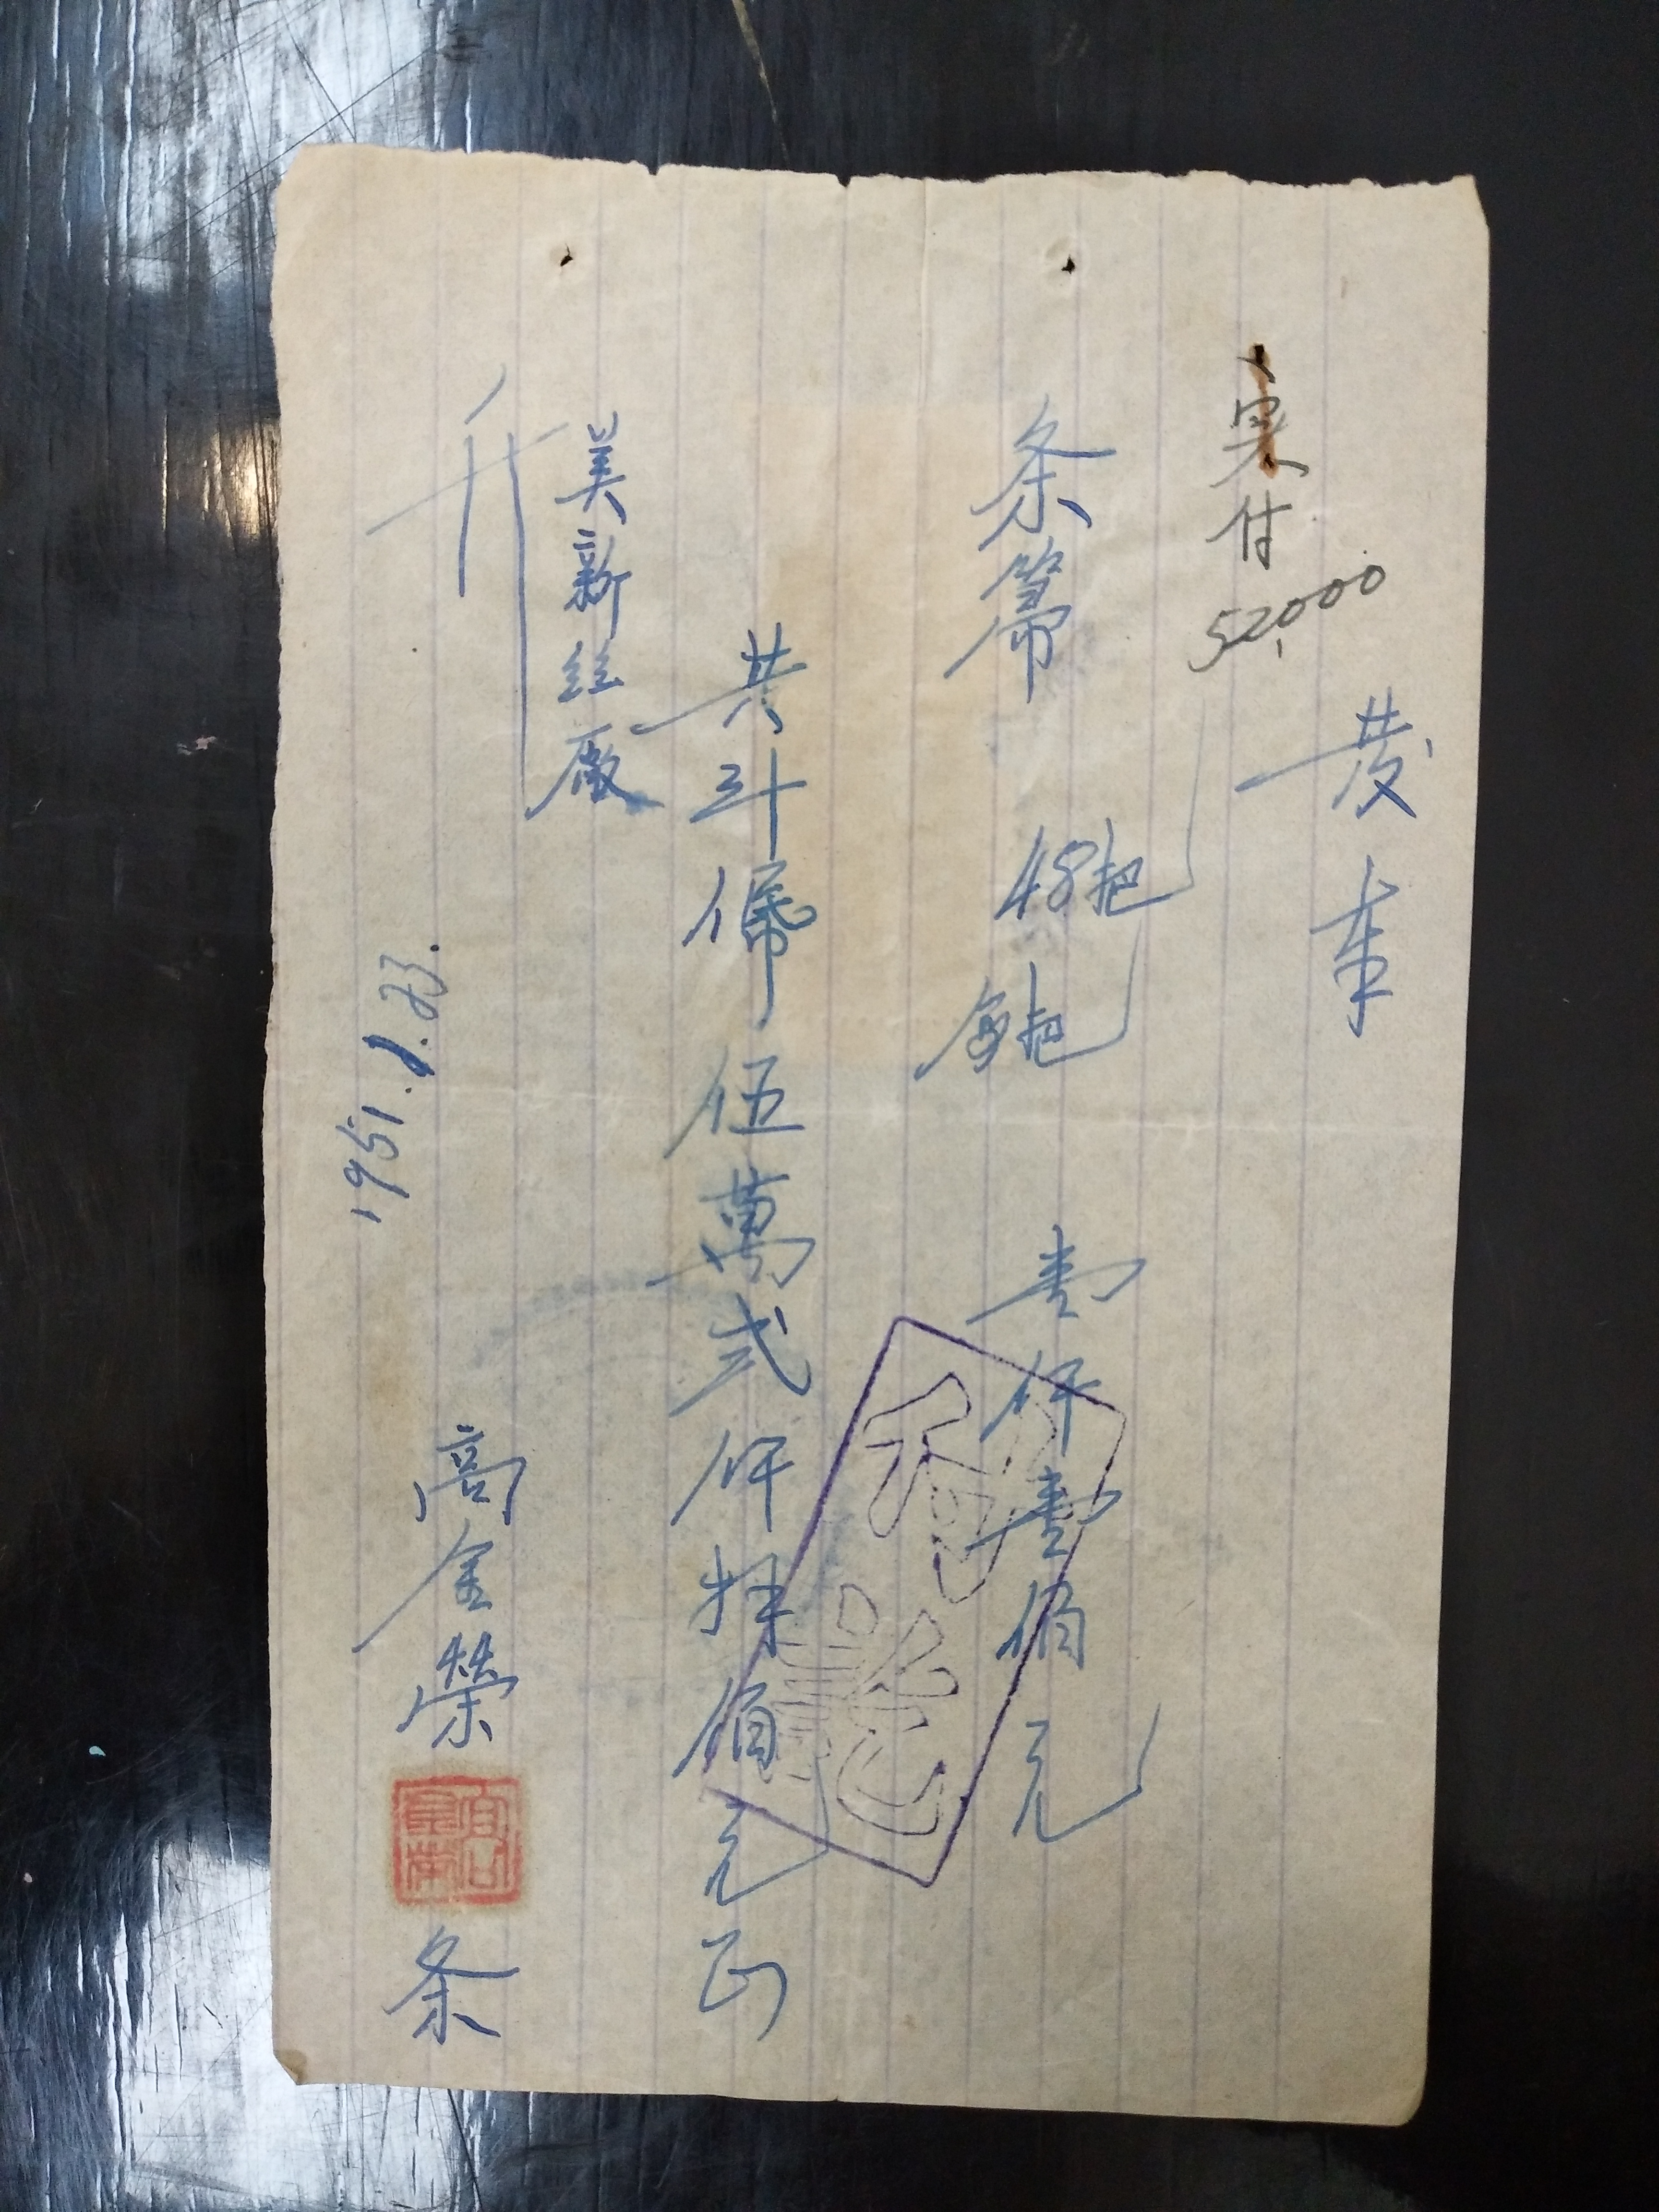 发票
実付 52,000
条箒 48把 每把 壹仟壹佰元
付訖
共计人民币伍萬弍仟捌佰元正
美新丝廠
1951.1.23.
高金榮 条